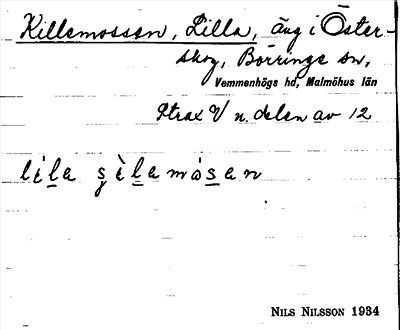 Killemossen, Lilla, äng i Öster-
skog, Börringe sn,
Vemmenhögs hd, Malmöhus län
Strax V n. delen av 12
lìla ʂìlamósan
NILS NILSSON 1934